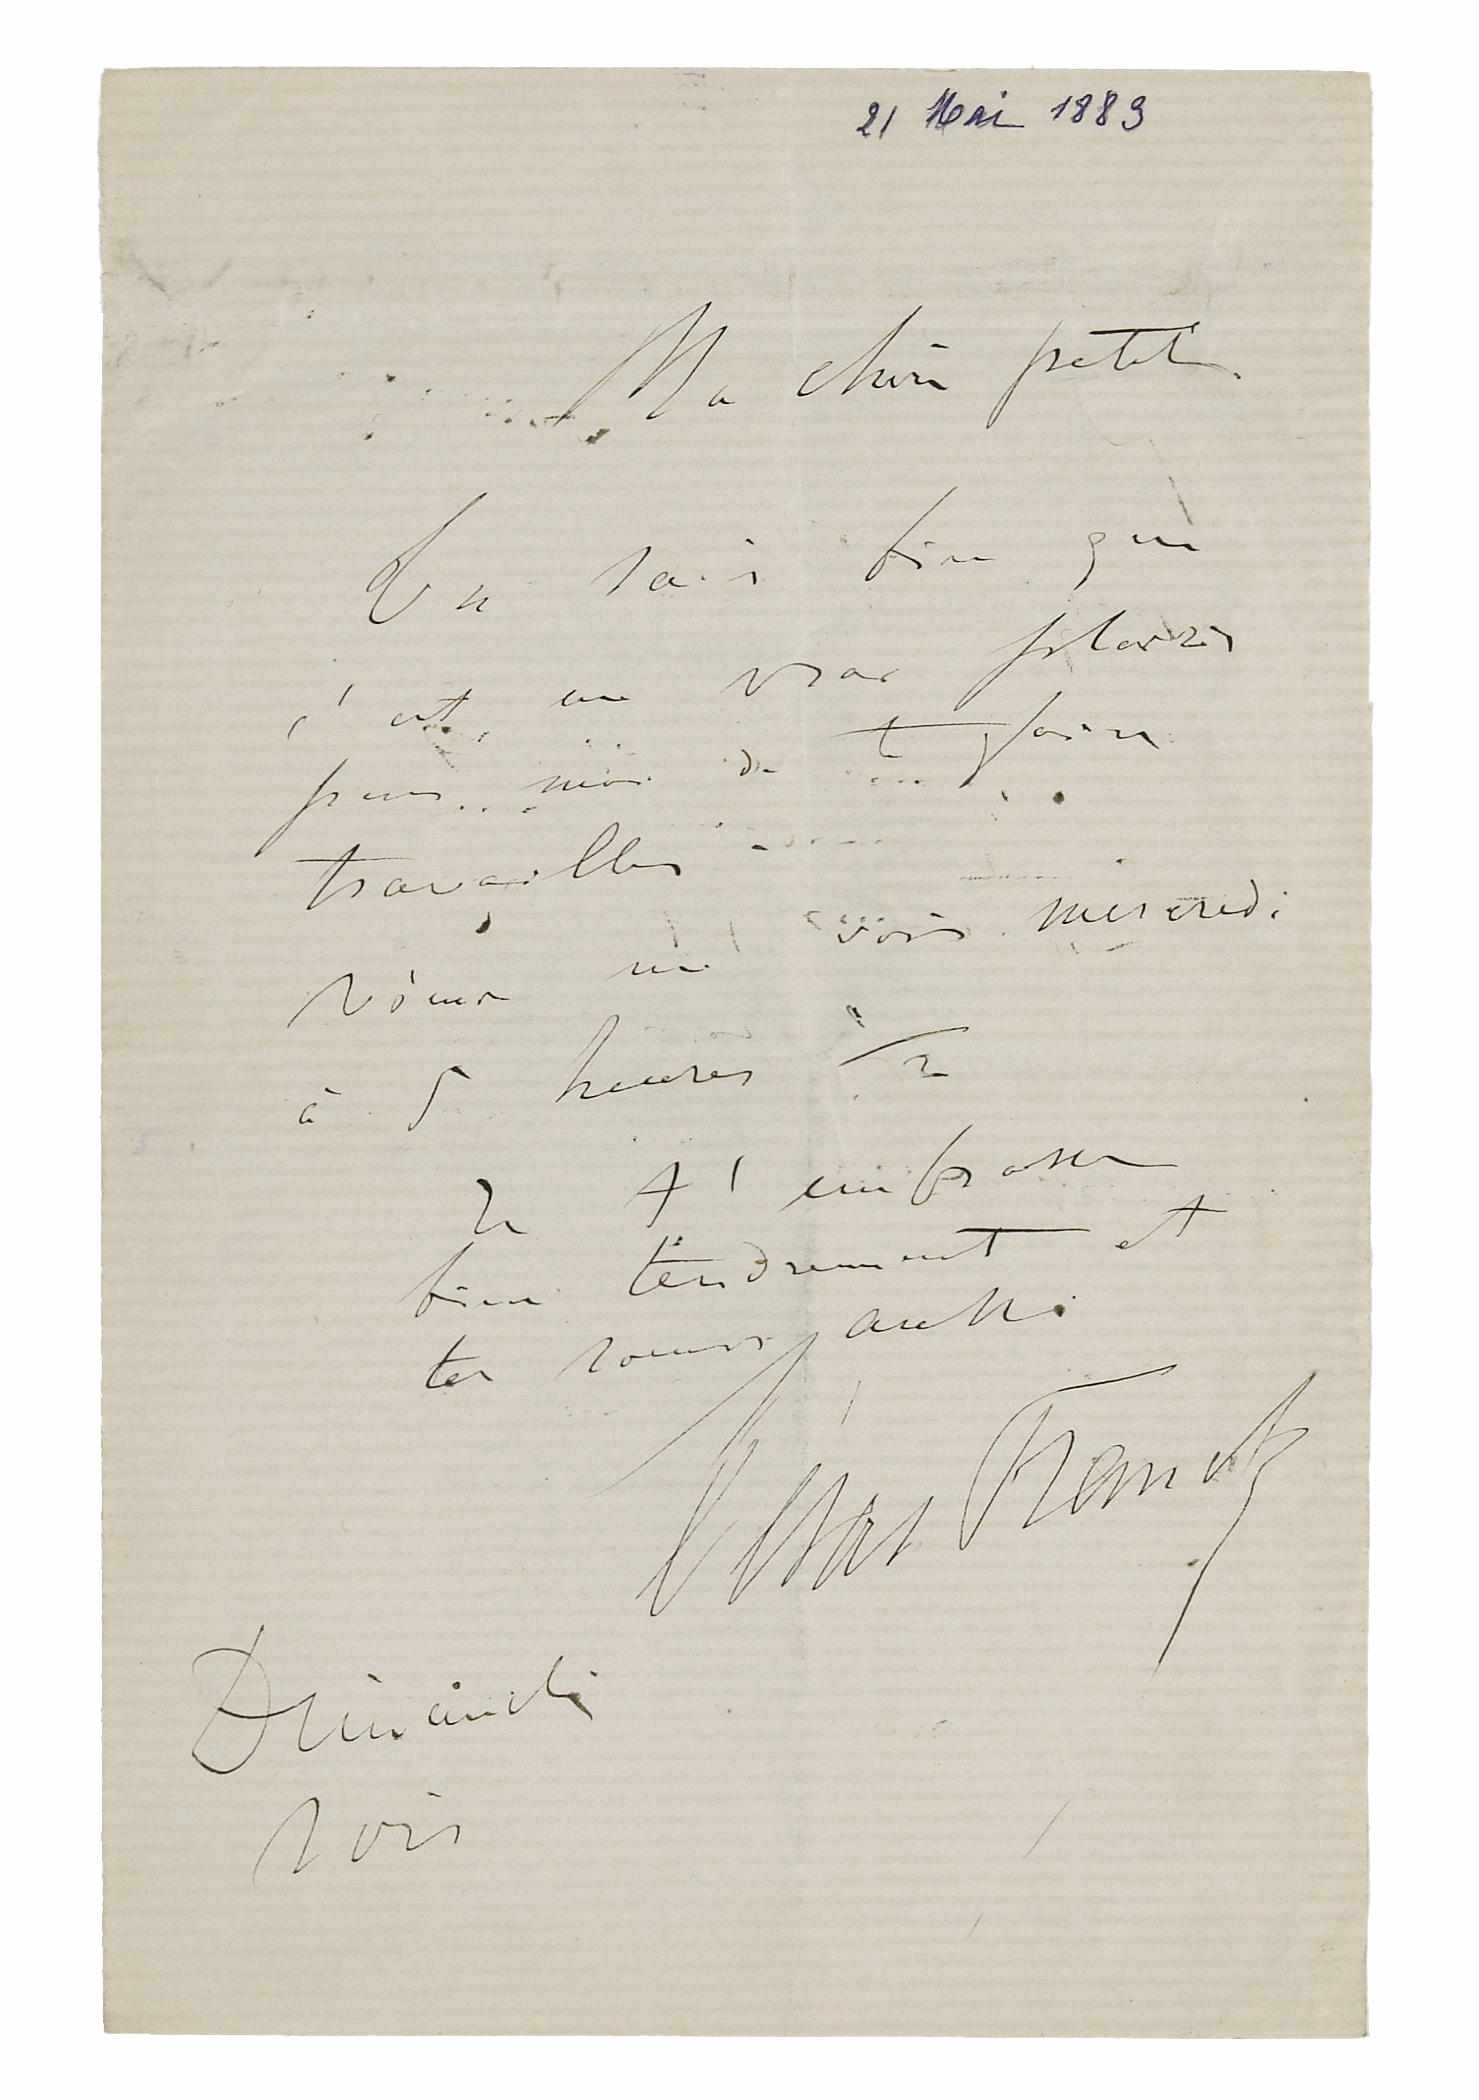 21 Mai 1883
Ma chère petite
Tu sais bien que
c'est un vrai plaisir
pour moi de te faire
travailler
Viens me voir mercredi
à 5 heures 1/2
Je t'embrasse
bien tendrement et
tes soeurs aussi
César Franck
Dimanche
soir